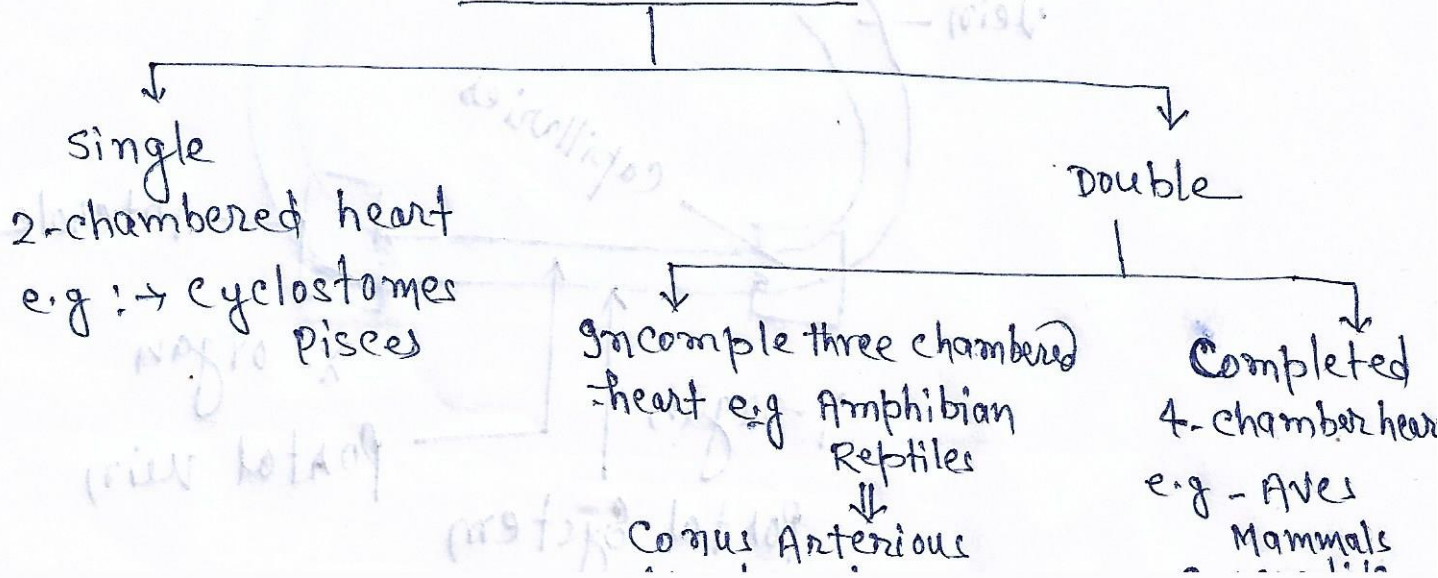 Single
2-chambered heart
e.g :→ Cyclostomes
Pisces
Double
Incomple three chambered
heart e.g Amphibian
Reptiles
⇓
Conus Arterious
Completed
4-chamber hear
e.g - Aves
Mammals